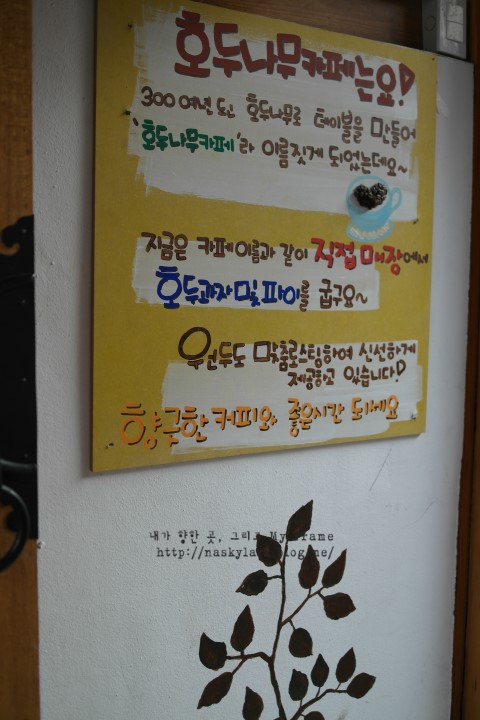 호두나무카페는요!
300여년 도신 호두나무로 테이블을 만들어
'호두나무카페'라 이름짓게 되었는데요~
지금은 카페이름과 같이 직접 매장에서
호두과자및파이를 굽구요~
원두도 맞춤로스팅하여 신선하게
제공하고 있습니다!
향긋한 커피와 좋은시간 되세요
내가 향한 곳, 그리고 My Frame